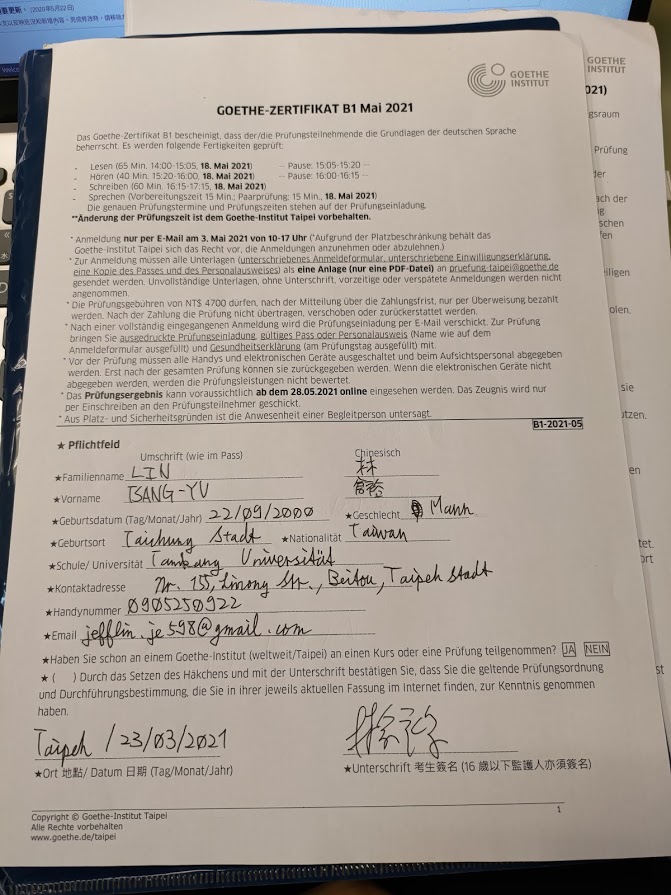 (2020年5月22日)
GOETHE
INSTITUT
GOETHE
INSTITUT
GOETHE-ZERTIFIKAT B1 Mai 2021
Das Goethe-Zertifikat B1 bescheinigt, dass der/die Prüfungsteilnehmende die Grundlagen der deutschen Sprache
beherrscht. Es werden folgende Fertigkeiten geprüft:
- Lesen (65 Min. 14:00-15:05, 18. Mai 2021) -- Pause: 15:05-15:20 --
- Hören (40 Min. 15:20-16:00, 18. Mai 2021) -- Pause: 16:00-16:15 --
- Schreiben (60 Min. 16:15-17:15, 18. Mai 2021)
- Sprechen (Vorbereitungszeit 15 Min.; Paarprüfung: 15 Min., 18. Mai 2021)
Die genauen Prüfungstermine und Prüfungszeiten stehen auf der Prüfungseinladung.
**Änderung der Prüfungszeit ist dem Goethe-Institut Taipei vorbehalten.
* Anmeldung nur per E-Mail am 3. Mai 2021 von 10-17 Uhr (*Aufgrund der Platzbeschränkung behält das
Goethe-Institut Taipei sich das Recht vor, die Anmeldungen anzunehmen oder abzulehnen.)
* Zur Anmeldung müssen alle Unterlagen (unterschriebenes Anmeldeformular, unterschriebene Einwilligungserklärung,
eine Kopie des Passes und des Personalausweises) als eine Anlage (nur eine PDF-Datei) an pruefung-taipei@goethe.de
gesendet werden. Unvollständige Unterlagen, ohne Unterschrift, vorzeitige oder verspätete Anmeldungen werden nicht
angenommen.
* Die Prüfungsgebühren von NT$ 4700 dürfen, nach der Mitteilung über die Zahlungsfrist, nur per Überweisung bezahlt
werden. Nach der Zahlung die Prüfung nicht übertragen, verschoben oder zurückerstattet werden.
* Nach einer vollständig eingegangenen Anmeldung wird die Prüfungseinladung per E-Mail verschickt. Zur Prüfung
bringen Sie ausgedruckte Prüfungseinladung, gültiges Pass oder Personalausweis (Name wie auf dem
Anmeldeformular ausgefüllt) und Gesundheitserklärung (am Prüfungstag ausgefüllt) mit.
* Vor der Prüfung müssen alle Handys und elektronischen Geräte ausgeschaltet und beim Aufsichtspersonal abgegeben
werden. Erst nach der gesamten Prüfung können sie zurückgegeben werden. Wenn die elektronischen Geräte nicht
abgegeben werden, werden die Prüfungsleistungen nicht bewertet.
* Das Prüfungsergebnis kann voraussichtlich ab dem 28.05.2021 online eingesehen werden. Das Zeugnis wird nur
per Einschreiben an den Prüfungsteilnehmer geschickt.
* Aus Platz- und Sicherheitsgründen ist die Anwesenheit einer Begleitperson untersagt.
B1-2021-05
★ Pflichtfeld
Umschrift (wie im Pass) Chinesisch
★Familienname LIN 林
★Vorname TSANG-YU
★Geburtsdatum (Tag/Monat/Jahr) 22/09/2000 ★Geschlecht Mann
★Geburtsort Taichung Stadt ★Nationalität Taiwan
★Schule/ Universität Tamkang Universität
★Kontaktadresse Nr. 155, Linong Str., Beitou, Taipeh Stadt
★Handynummer 0905250922
★Email jefflin.je598@gmail.com
★Haben Sie schon an einem Goethe-Institut (weltweit/Taipei) an einen Kurs oder eine Prüfung teilgenommen? JA NEIN
★ ( ) Durch das Setzen des Häkchens und mit der Unterschrift bestätigen Sie, dass Sie die geltende Prüfungsordnung
und Durchführungsbestimmung, die Sie in ihrer jeweils aktuellen Fassung im Internet finden, zur Kenntnis genommen
haben.
Taipeh /23/03/2021
★Ort 地點/ Datum 日期 (Tag/Monat/Jahr) ★Unterschrift 考生簽名 (16 歲以下監護人亦須簽名)
1
Copyright © Goethe-Institut Taipei
Alle Rechte vorbehalten
www.goethe.de/taipei
021)
gsraum
Prüfung
der
ach der
schen
iligen
olen.
sie
utzen.
en
tet.
ort
st